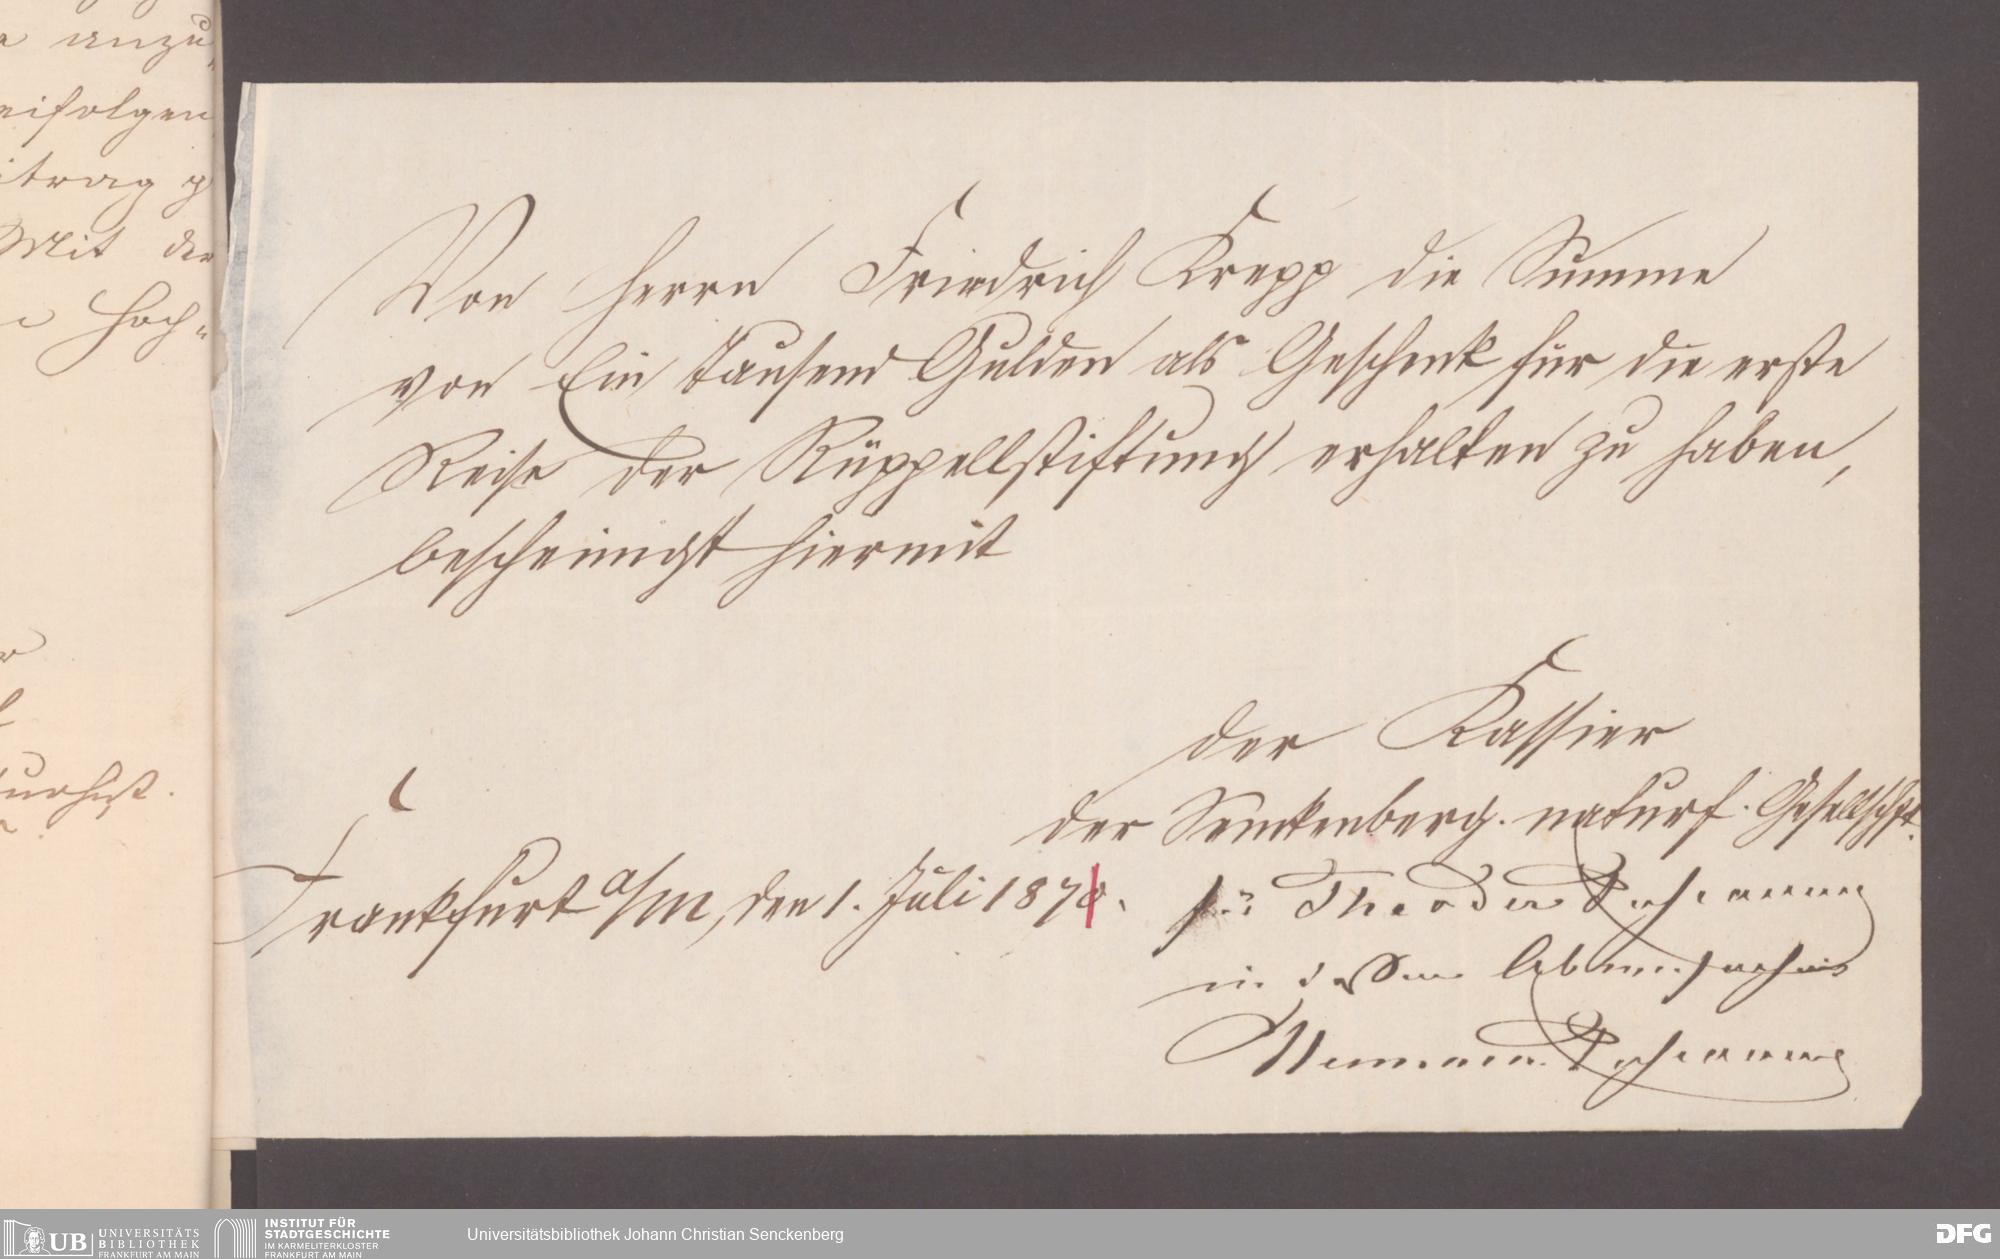 e anzu
eifolgen
itrag
Mit der
Hoch-
Von Herrn Friedrich Krepp die Summe
von Ein tausend Gulden als Geschenk für die erste
Reise der Rüppellstiftung erhalten zu haben,
bescheinigt hiermit
Der Kassier
der Senckenberg. naturf. Gesellschft.
Frankfurt a/M, den 1. Juli 1870.
für Theodor
in dessen Abwesenheit
Hermann
UB UNIVERSITÄTS
BIBLIOTHEK
FRANKFURT AM MAIN
INSTITUT FÜR
STADTGESCHICHTE
IM KARMELITERKLOSTER
FRANKFURT AM MAIN
Universitätsbibliothek Johann Christian Senckenberg
DFG